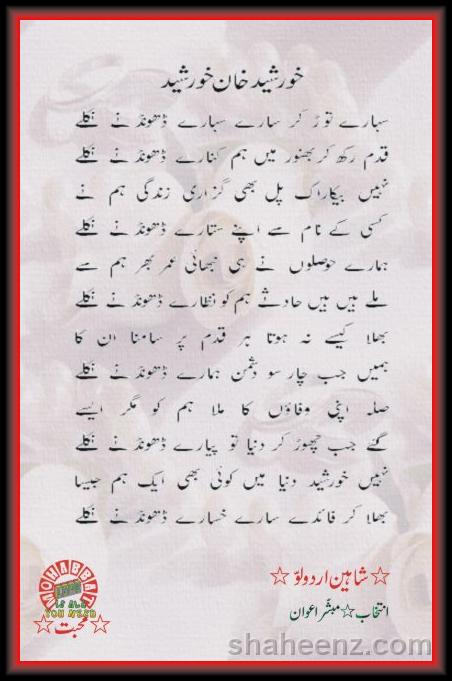 خورشید خان خورشید
سہارے توڑ کر سارے سہارے ڈھونڈنے نکلے
قدم رکھ کر بھنور میں ہم کنارے ڈھونڈنے نکلے
نہیں بیکار اک پل بھی گزاری زندگی ہم نے
کسی کے نام سے اپنے ستارے ڈھونڈنے نکلے
ہمارے حوصلوں نے ہی نبھائی عمر بھر ہم سے
ملے ہیں ہیں حادثے ہم کو نظارے ڈھونڈنے نکلے
بھلا کیسے نہ ہوتا ہر قدم پر سامنا ان کا
ہمیں جب چار سو دشمن ہمارے ڈھونڈنے نکلے
صلہ اپنی وفاؤں کا ملا ہم کو مگر ایسے
گئے جب چھوڑ کر دنیا تو پیارے ڈھونڈنے نکلے
نہیں خورشید دنیا میں کوئی بھی ایک ہم جیسا
بھلا کر فائدے سارے خسارے ڈھونڈنے نکلے
☆ شاہین اردو لوّ ☆
انتخاب ☆ مبشّر اعوان
MOHABBAT
IS ALL
YOU NEED
☆ محبت ☆
shaheenz.com